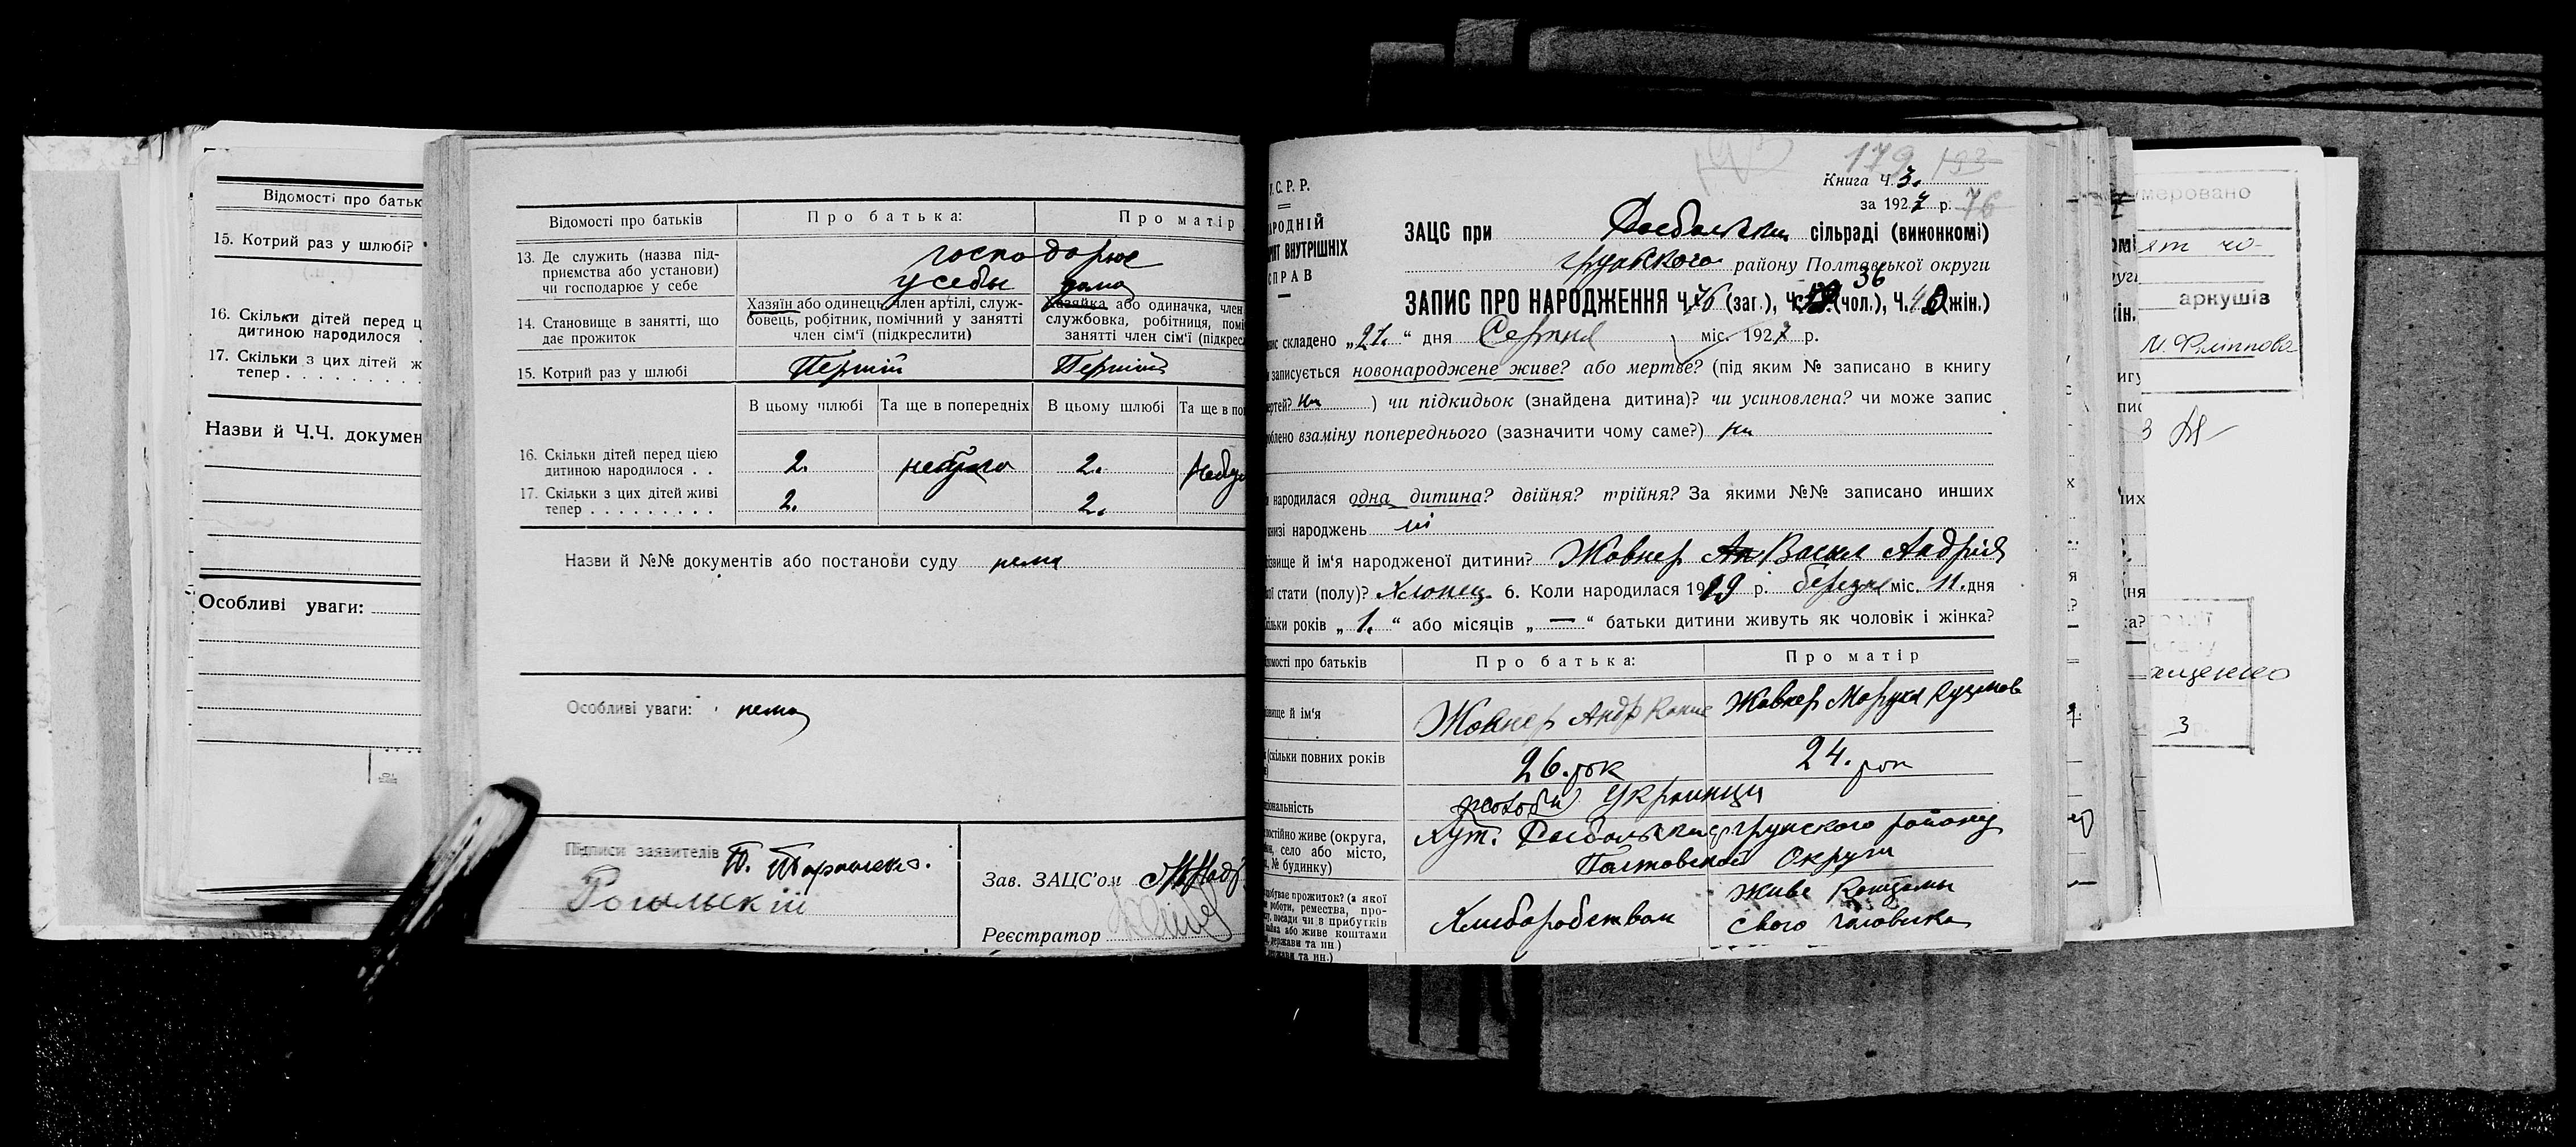 Відомості про батьк
15. Котрий раз у шлюбі?
16. Скільки дітей перед ц
дитиною народилося .
17. Скільки з цих дітей ж
тепер . . . . . . . . .
Назви й Ч.Ч. докумен
Особливі уваги:
Відомості про батьків
Про батька:
Про матір
13. Де служить (назва під-
приємства або установи)
чи господарює у себе
господарює
у себы дома
14. Становище в занятті, що
дає прожиток
Хазяїн або одинець, член артілі, служ-
бовець, робітник, помічний у занятті
член сім'ї (підкреслити)
Хазяйка або одиначка, член
службовка, робітниця, помі
занятті член сім'ї (підкрес
15. Котрий раз у шлюбі
Перший
Перший
В цьому шлюбі
Та ще в попередніх
В цьому шлюбі
Та ще в по
16. Скільки дітей перед цією
дитиною народилося . .
2. небуло 2. небу
17. Скільки з цих дітей живі
тепер . . . . . . . . .
2. 2.
Назви й №№ документів або постанови суду нема
Особливі уваги: нема
Підписи заявителів
Зав. ЗАЦС'ом
Реєстратор
С. Р. Р.
АРОДНІЙ
РИТ ВНУТРІШНІХ
СПРАВ
179 193
Книга Ч. 3.
за 1927 р. 76
ЗАЦС при сільраді (виконкомі)
грунского району Полтавської округи
36
ЗАПИС ПРО НАРОДЖЕННЯ Ч. 76 (заг.), Ч. (чол.), Ч. 40 (жін.)
пис складено „21.“ дня Серпня міс. 1927 р.
записується новонароджене живе? або мертве? (під яким № записано в книгу
ертей? ни ) чи підкидьок (знайдена дитина)? чи усиновлена? чи може запис
облено взаміну попереднього (зазначити чому саме?) ни
народилася одна дитина? двійня? трійня? За якими №№ записано инших
книзі народжень ні
звище й ім'я народженої дитини? Жовнер Васил Андрія
ої стати (полу)? Хлопец 6. Коли народилася 19 р. березня міс. 11. дня
кільки років „1.“ або місяців „—“ батьки дитини живуть як чоловік і жінка?
домості про батьків
Про батька:
Про матір
звище й ім'я
Жовнер Андр
Жовнер Маруся Кузмов
(скільки повних років
26. рок
24. рок
ціональність
Украинци
постійно живе (округа,
он, село або місто,
, № будинку)
Хут. грунского району
Полтовской Округи
добуває прожиток? (з якої
роботи, ремества, про-
, посади чи в прибутків
або живе коштами
, держави та ин.)
Хлиборобством
живе Коштамы
свого чоловика
умеровано
аркушів
3